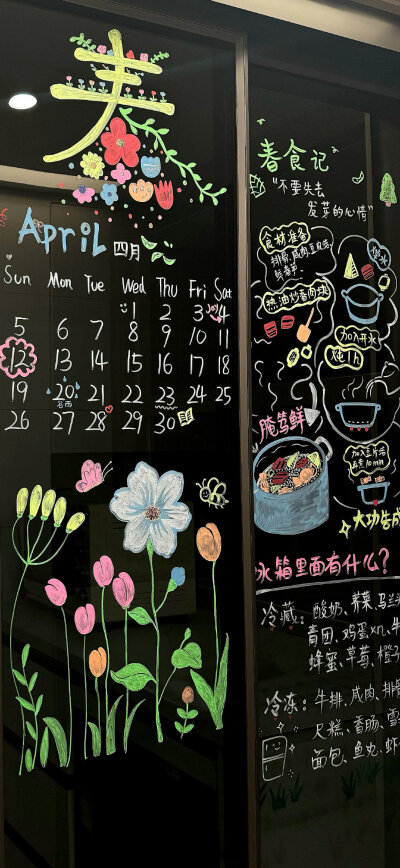 春
April 四月
Sun Mon Tue Wed Thu Fri Sat
1 2 3 4
Joy
5 6 7 8 9 10 11
12 13 14 15 16 17 18
19 20 21 22 23 24 25
谷雨
26 27 28 29 30
春食记
"不要失去
发芽的心情"
食材准备
排骨、咸肉、豆皮结、
热油炒香肉块
加入开水
炖1h
腌笃鲜
大功告成
冰箱里面有什么?
冷藏: 酸奶、荠菜、马兰头
青团、鸡蛋xn、牛
蜂蜜、草莓、橙子
冷冻: 牛排、咸肉、排骨
尺糕、香肠、雪
面包、鱼丸、虾